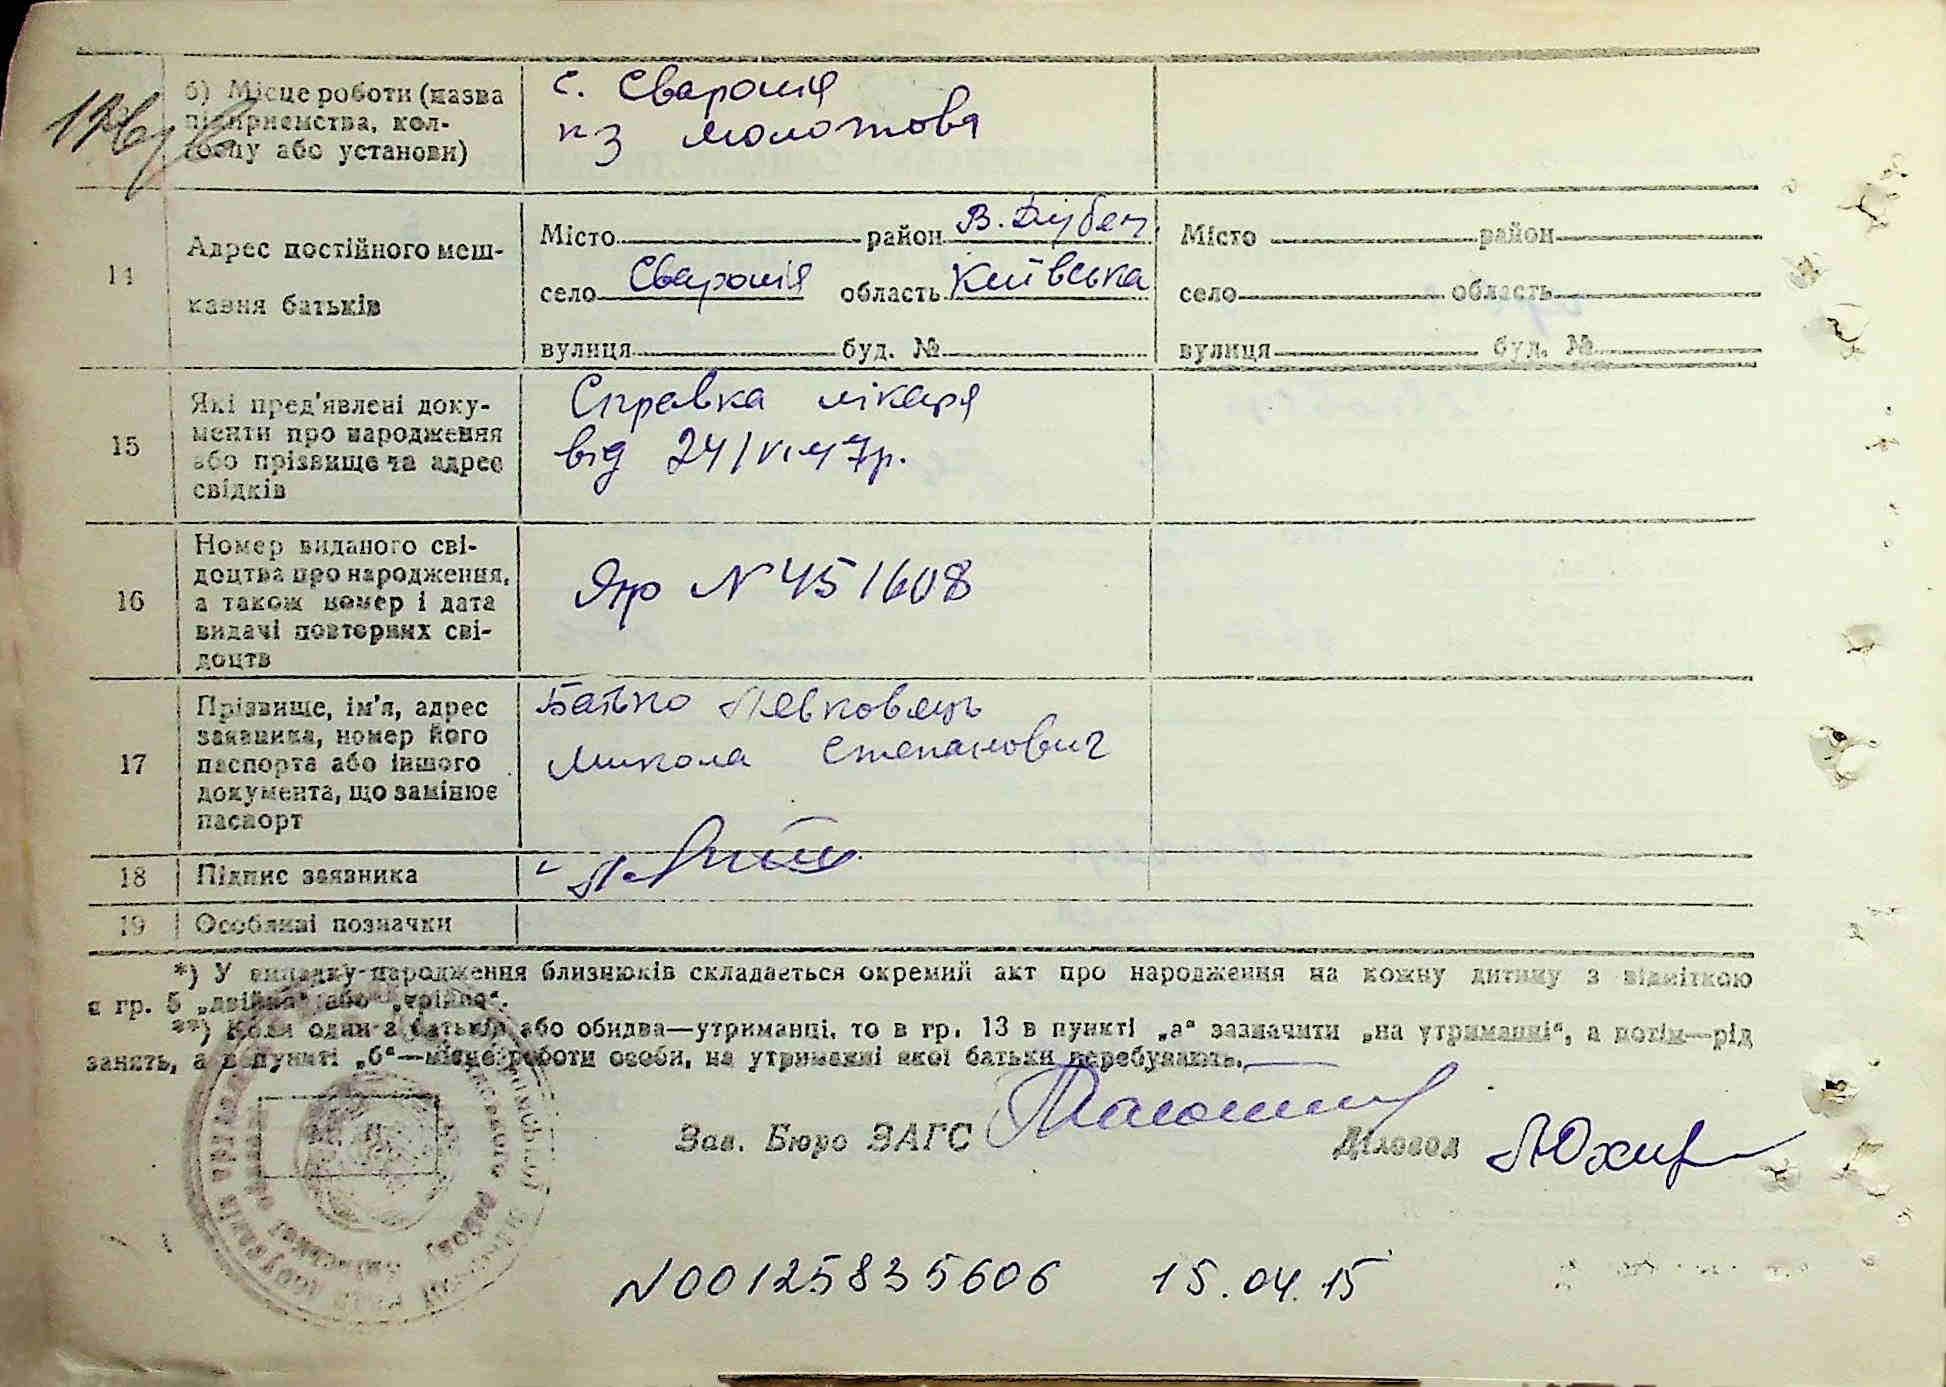 б) Місце роботи (назва
підприємства, кол-
госпу або установи)
с. Сваромя
к-з Молотова
14
Адрес постійного меш-
кання батьків
Місто район В. Дубеч.
село Сваромя область Київська
вулиця буд. №
Місто район
село область
вулиця буд. №
15
Які пред'явлені доку-
менти про народження
або прізвище та адрес
свідків
Справка лікаря
від 24/VI 47р.
16
Номер виданого сві-
доцтва про народження,
а також номер і дата
видачі повторних сві-
доцтв
ЯПР N 451608
17
Прізвище, ім'я, адрес
заявника, номер його
паспорта або іншого
документа, що замінює
паспорт
Батько Левковець
Микола Степанович
18
Підпис заявника
19
Особливі позначки
*) У випадку народження близнюків складається окремий акт про народження на кожну дитину з відміткою
в гр. 5 „двійня“ або „трійня“.
**) Коли один з батьків або обидва—утриманці, то в гр. 13 в пункті „а“ зазначити „на утриманні“, а потім—рід
занять, а в пункті „б“—місце роботи особи, на утриманні якої батьки перебувають.
Зав. Бюро ЗАГС
Діловод
N00125835606 15.04.15